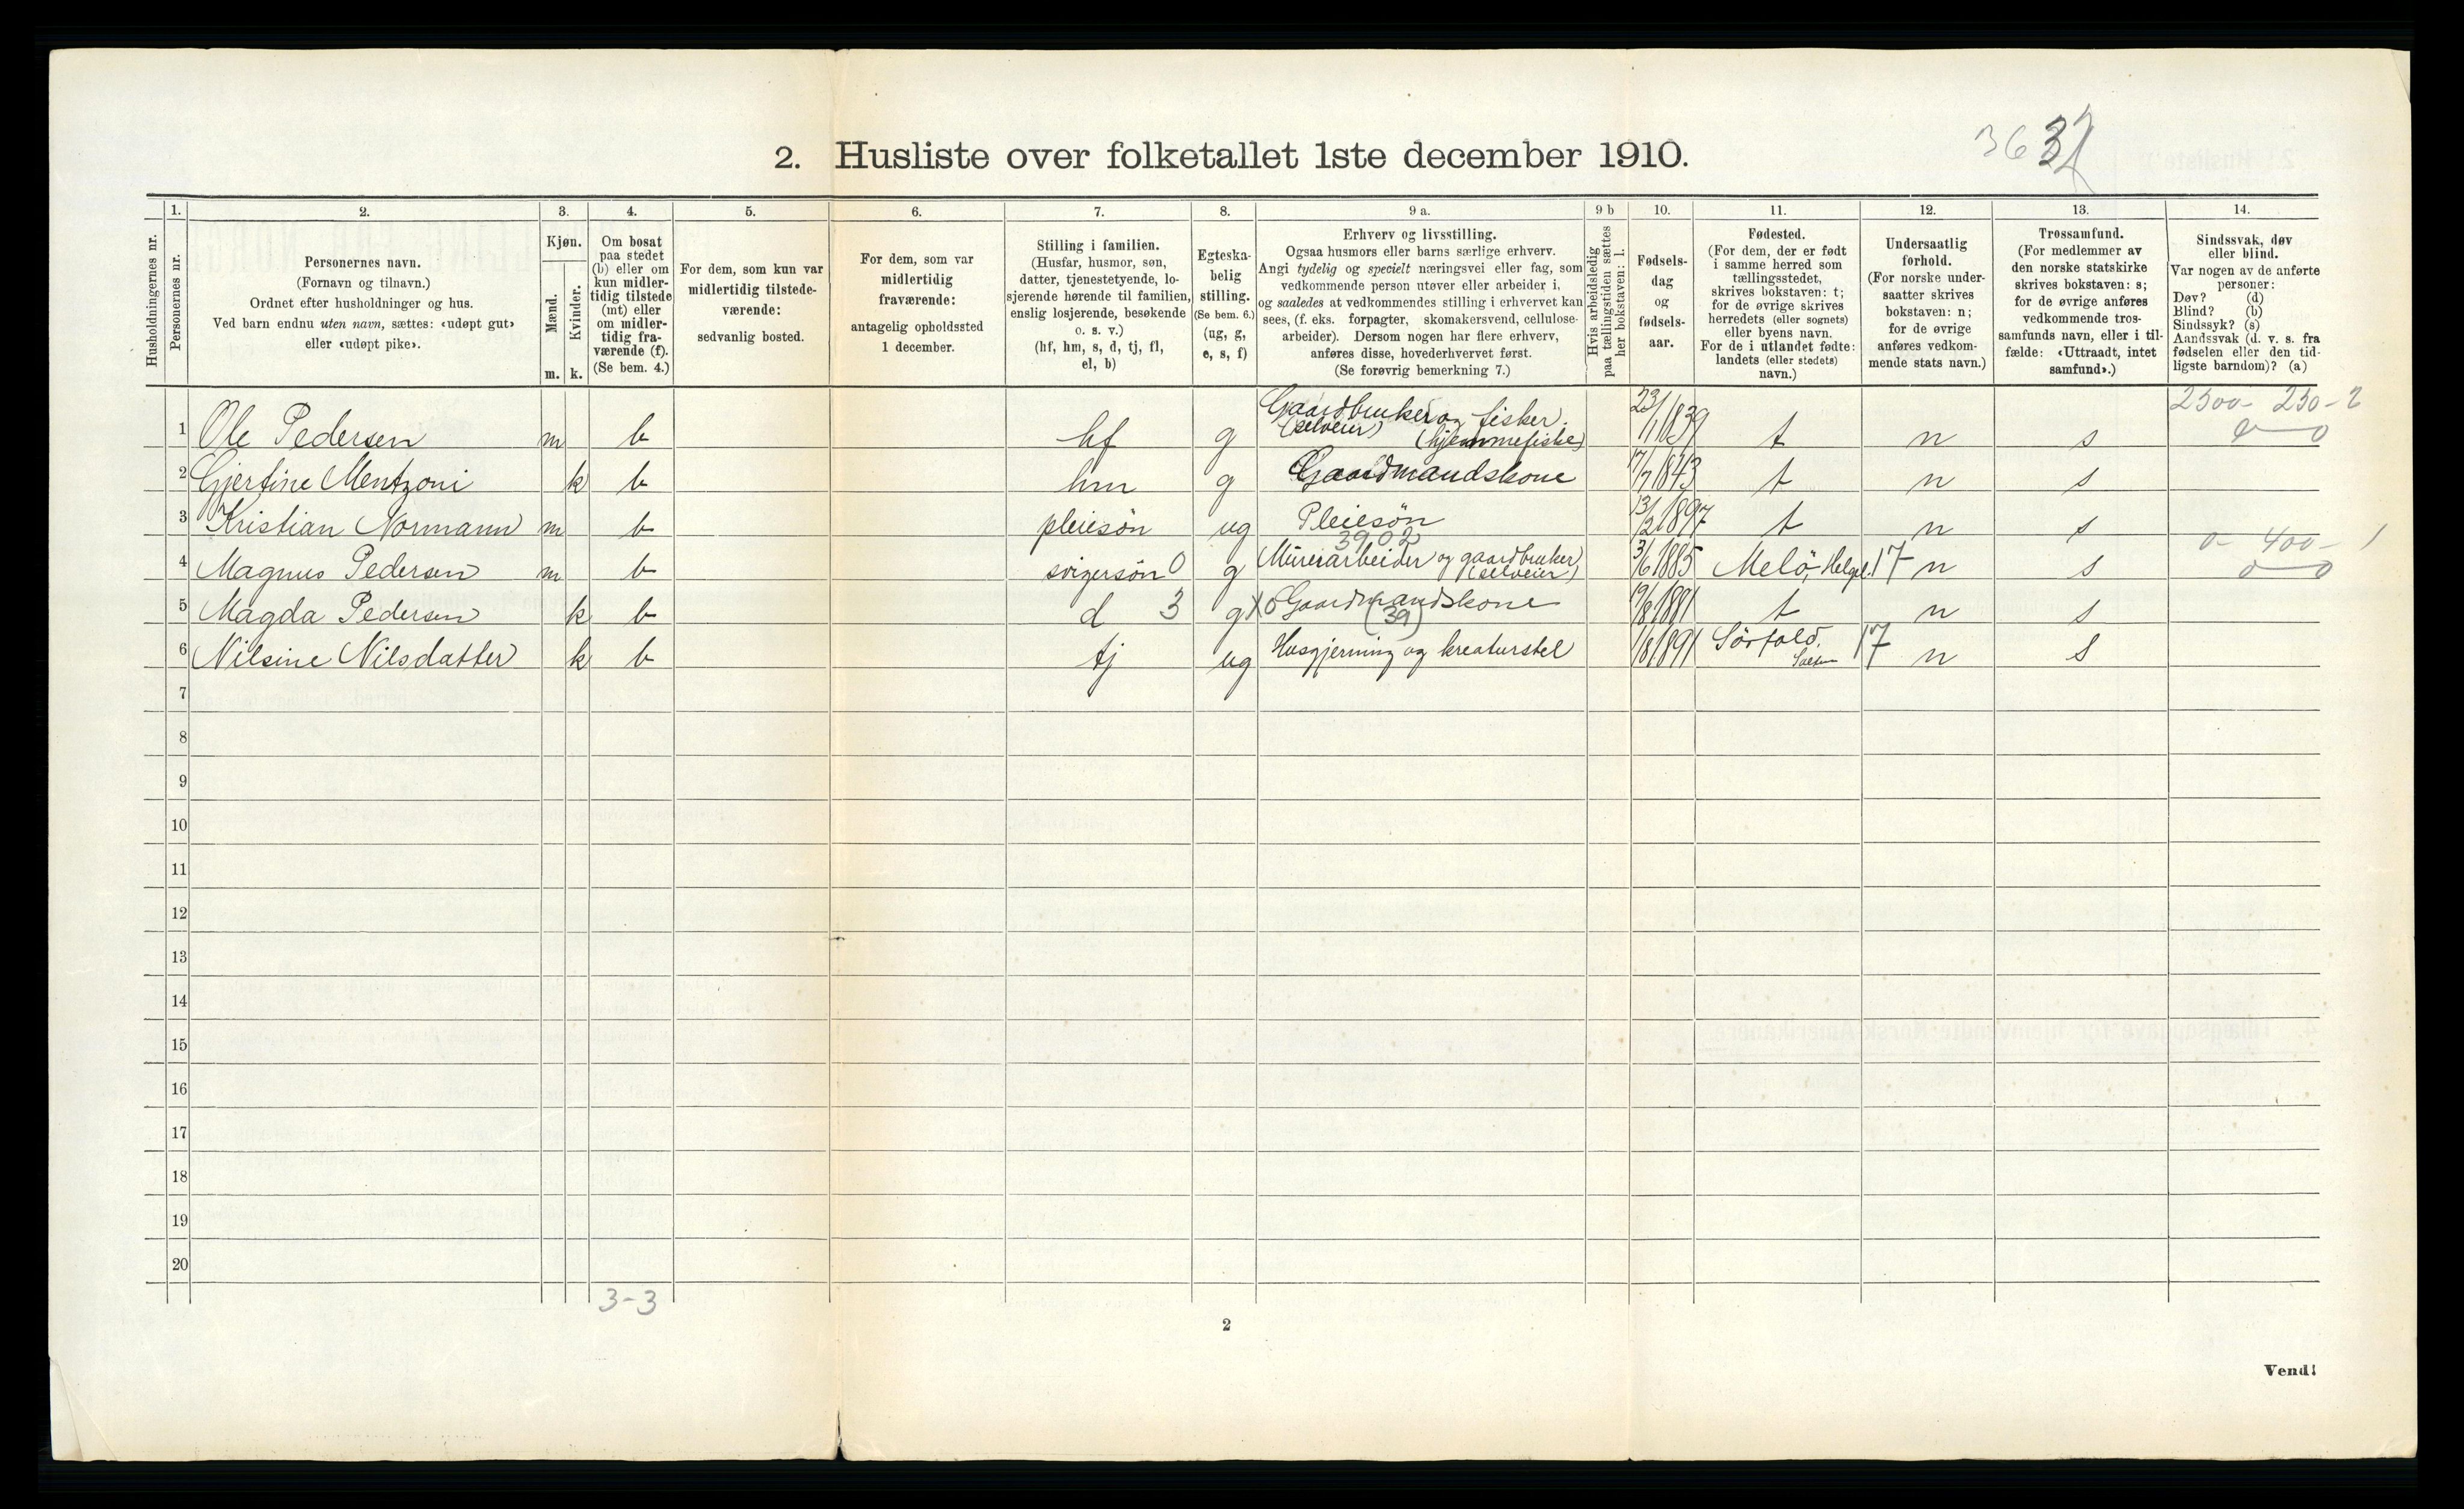 2. Husliste over folketallet 1ste december 1910.
1. 2. 3. 4. 5. 6. 7. 8. 9 a. 9 b 10. 11. 12. 13. 14.
Husholdningernes nr.
Personernes nr.
Personernes navn.
(Fornavn og tilnavn.)
Ordnet efter husholdninger og hus.
Ved barn endnu uten navn, sættes: «udøpt gut»
eller «udøpt pike».
Kjøn.
Mænd.
Kvinder.
m. k.
Om bosat
paa stedet
(b) eller om
kun midler-
tidig tilstede
(mt) eller
om midler-
tidig fra-
værende (f).
(Se bem. 4.)
For dem, som kun var
midlertidig tilstede-
værende:
sedvanlig bosted.
For dem, som var
midlertidig
fraværende:
antagelig opholdssted
1 december.
Stilling i familien.
(Husfar, husmor, søn,
datter, tjenestetyende, lo-
sjerende hørende til familien,
enslig losjerende, besøkende
o. s. v.)
(hf, hm, s, d, tj, fl,
el, b)
Egteska-
belig
stilling.
(Se bem. 6.)
(ug, g,
e, s, f)
Erhverv og livsstilling.
Ogsaa husmors eller barns særlige erhverv.
Angi tydelig og specielt næringsvei eller fag, som
vedkommende person utøver eller arbeider i,
og saaledes at vedkommendes stilling i erhvervet kan
sees, (f. eks. forpagter, skomakersvend, cellulose-
arbeider). Dersom nogen har flere erhverv,
anføres disse, hovederhvervet først.
(Se forøvrig bemerkning 7.)
Hvis arbeidsledig
paa tællingstiden sættes
her bokstaven: l.
Fødsels-
dag
og
fødsels-
aar.
Fødested.
(For dem, der er født
i samme herred som
tællingsstedet,
skrives bokstaven: t;
for de øvrige skrives
herredets (eller sognets)
eller byens navn.
For de i utlandet fødte:
landets (eller stedets)
navn.)
Undersaatlig
forhold.
(For norske under-
saatter skrives
bokstaven: n;
for de øvrige
anføres vedkom-
mende stats navn.)
Trossamfund.
(For medlemmer av
den norske statskirke
skrives bokstaven: s;
for de øvrige anføres
vedkommende tros-
samfunds navn, eller i til-
fælde: «Uttraadt, intet
samfund».)
Sindssvak, døv
eller blind.
Var nogen av de anførte
personer:
Døv? (d)
Blind? (b)
Sindssyk? (s)
Aandssvak (d. v. s. fra
fødselen eller den tid-
ligste barndom)? (a)
2500- 250-2
1 Ole Pedersen m b hf g Gaardbruker og fisker. (selveier) (hjemmefiske) 23/1 1839 t n s
2 Gjertine Mentzoni k b hm g Gaardmandskone 17/7 1843 t n s
3 Kristian Normann m b pleiesøn ug Pleiesøn 13/2 1897 t n s
3902 0- 400- 1
4 Magnus Pedersen m b svigersøn 0 g Murerarbeider og gaardbruker (selveier) 3/6 1885 Melö, Helgel. 17 n s 0 0
5 Magda Pedersen k b d 3 g Gaardmandskone (39) 19/8 1881 t n s
6 Nilsine Nilsdatter k b tj ug Husgjerning og kreaturstel 1/8 1891 Sörfold, Salten 17 n s
7
8
9
10
11
12
13
14
15
16
17
18
19
20
3-3
2
Vend!